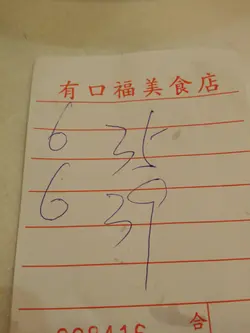 有口福美食店
6 35
6 39
合